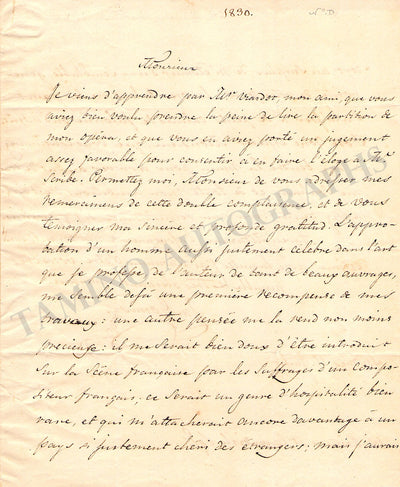 1830.
Monsieur
Je viens d'apprendre par Mr. Viardot, mon ami, que vous
aviez bien voulu prendre la peine de lire la partition de
mon opéra, et que vous en aviez porté un jugement
assez favorable pour consentir à en faire l'éloge à Mr.
Scribe. Permettez moi, Monsieur de vous adresser mes
remercimens de cette double complaisance, et de vous
témoigner ma sincere et profonde gratitud. L'appro-
bation d'un homme aussi justement célebre dans l'art
que je professe, de l'auteur de tant de beaux ouvrages,
me semble dejà une première recompense de mes
travaux: une autre pensée me la rend non moins
precieuse: il me serait bien doux d'être introduit
sur la Scène française par les suffrages d'un compo-
siteur français, ce serait un genre d'hospitalité bien
rare, et qui m'attacherait ancore davantage à un
pays si justement chéri des étrangers; mais j'aurais
TAMINO AUTOGRAPHS